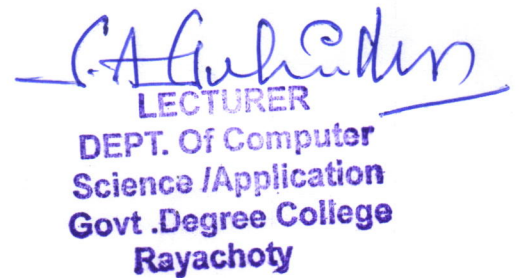 LECTURER
DEPT. Of Computer
Science /Application
Govt .Degree College
Rayachoty